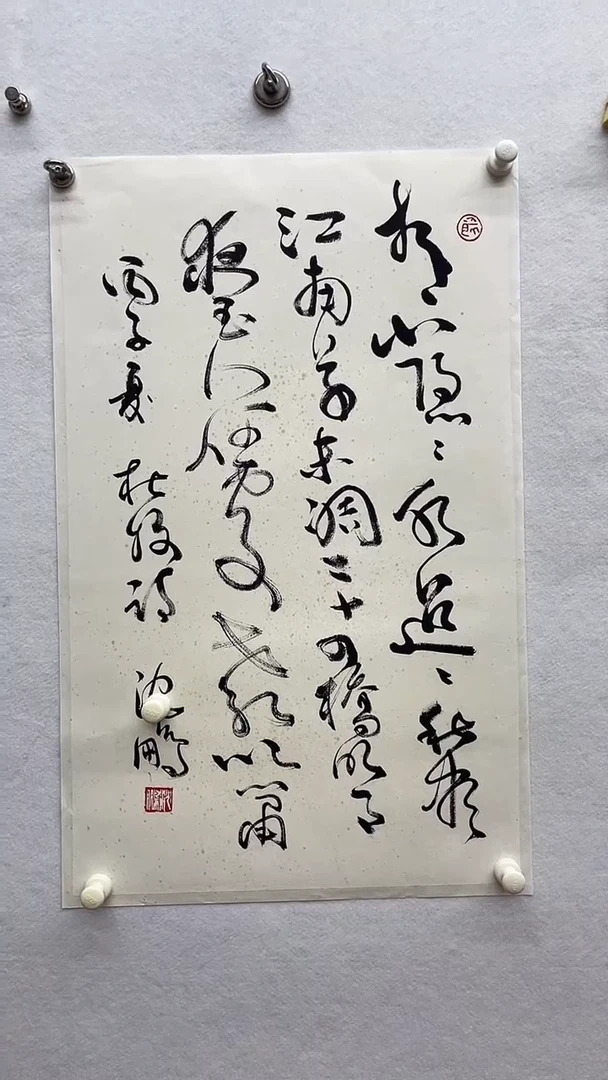 青山隐〻水迢〻秋尽
江南草未凋二十四橋明月
夜玉人何处教吹箫
丙子夏 杜牧诗 沈鹏